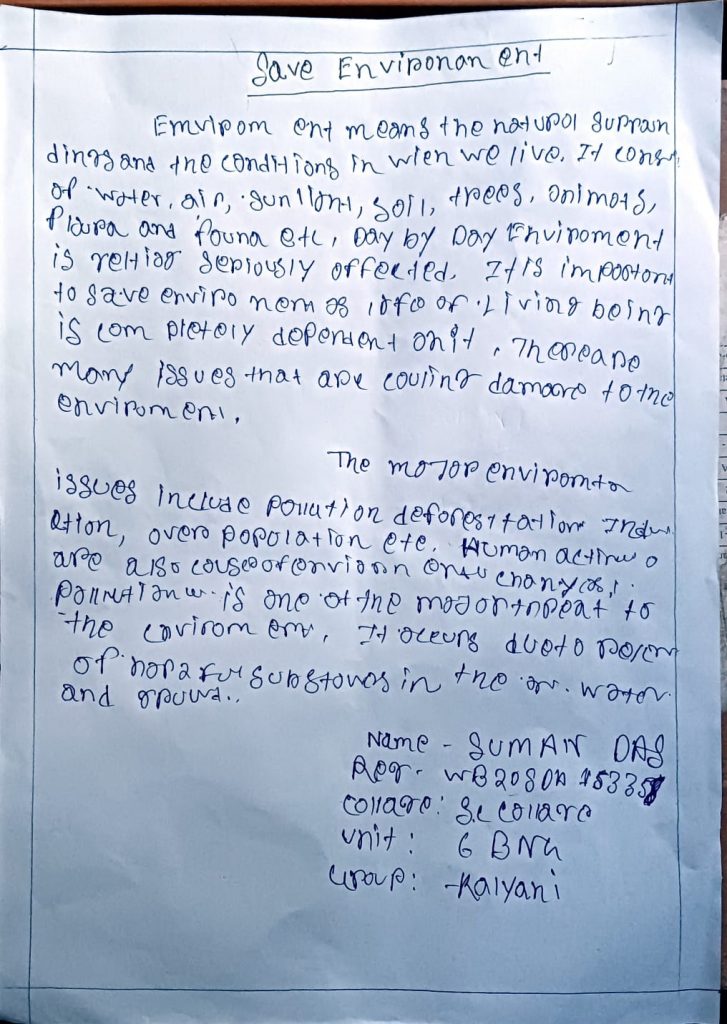 Save Environanent
Emvirom ent means the natural surroun
dings and the conditions in wien we live. It cons
of water, air, sunlight, soil, trees, animals,
flaura and founa etc, Day by Day Enviroment
is getting seriously affected. It is important
to save enviro nem as life of Living being
is com pletely dependent on it, There are
many issues that are couling damage to the
enviroment,
The major enviromtn
issues include pollution deforesttation Indu
ation, over popolation etc. Human active
are also couse of environ changes,
Pollution is one of the major threat to
the envirom ent, It occurs due to
of substances in the air. water
and
Name - SUMAN DAS
Reg- WB20SDA
Collage: S.c collage
Unit: 6 BNG
Group: -Kalyani